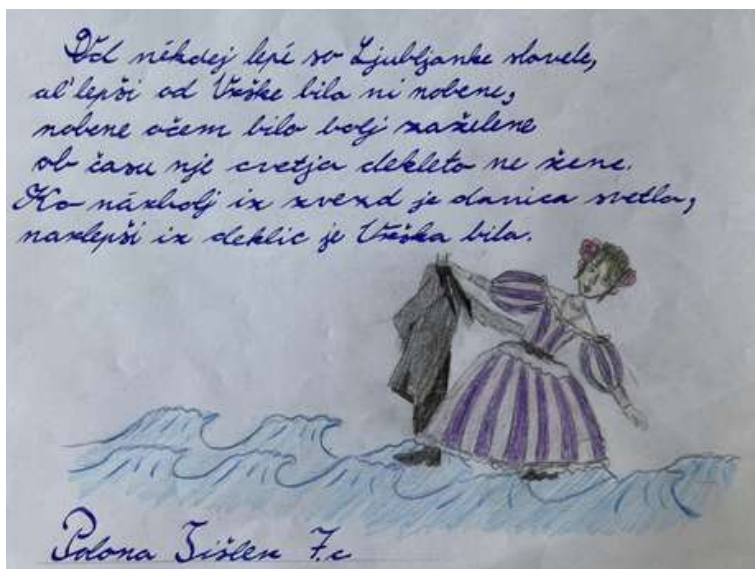 Od nékdej lepé so Ljubljanke slovele,
al' lepši od Urške bilo ni nobene,
nobene očem bilo bolj zaželene
ob času nje cvetja dekleta ne žene.
Ko nárbolj iz zvezd je danica svetla,
narlepši iz deklic je Urška bila.
Polona Zišlen 7.c